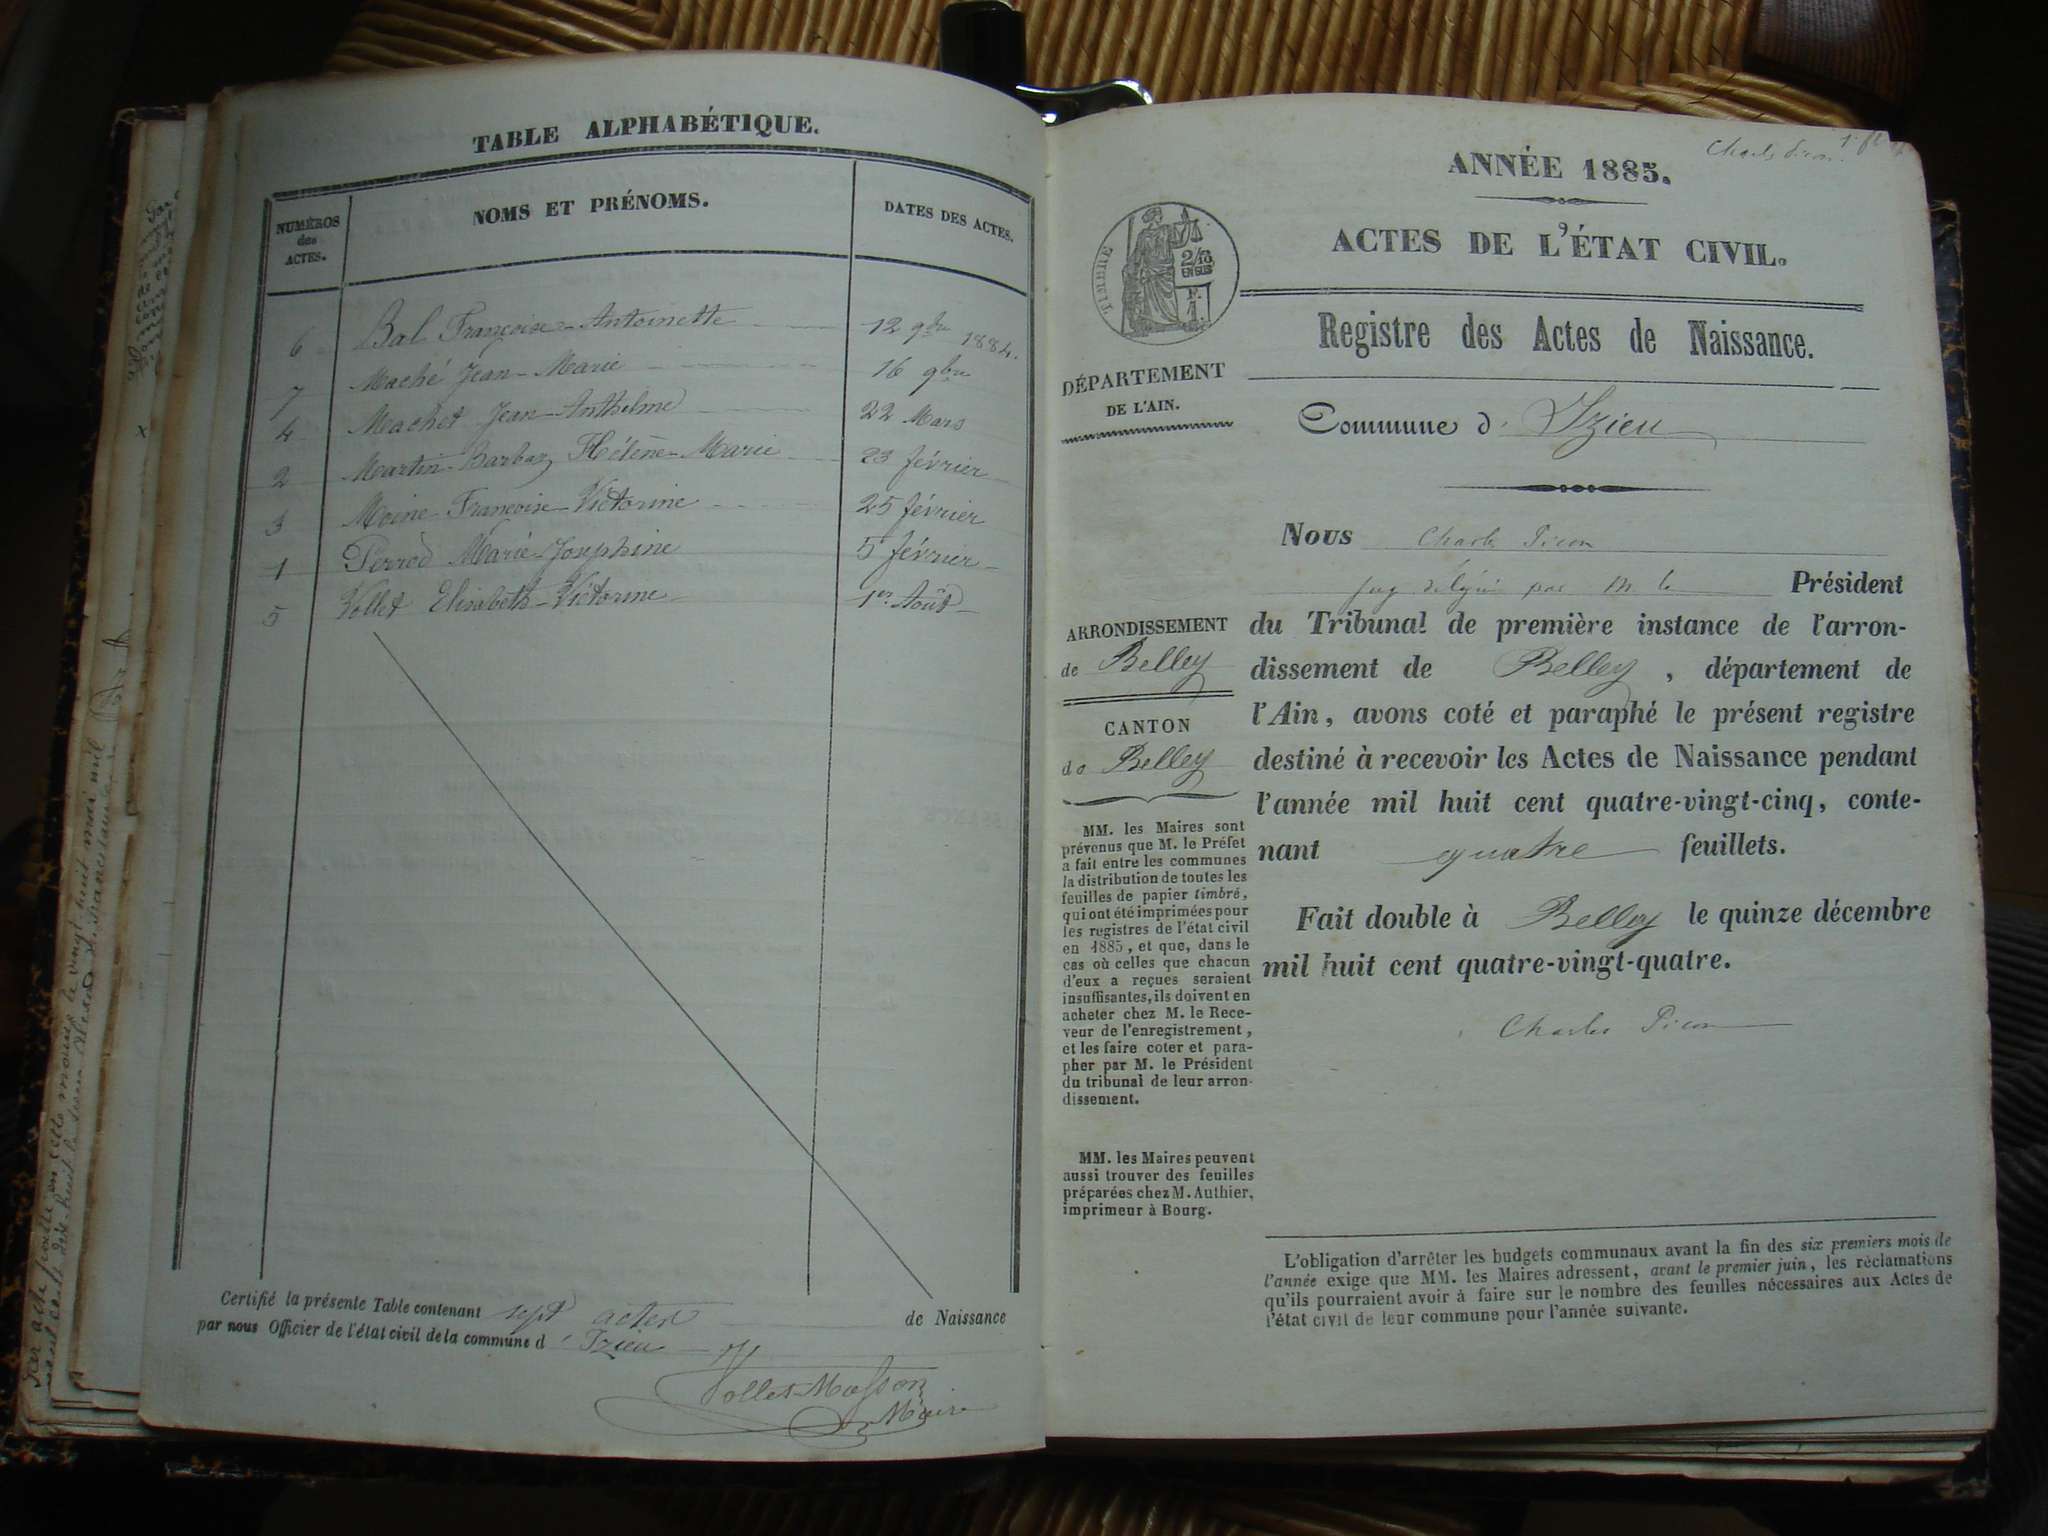 TABLE ALPHABÉTIQUE.
NUMÉROS
des
ACTES.
NOMS ET PRÉNOMS.
DATES DES ACTES.
6 Bal Françoise-Antoinette 12 9bre 1884.
7 Maché Jean-Marie 16 9bre
4 Machet Jean-Anthelme 22 Mars
2 Martin-Barbaz Hélène-Marie 23 février
3 Moine Françoise-Victorine 25 février
1 Perrod Marie-Josephine 5 février
5 Vollet Elisabeth-Victorine 1er Août
Certifié la présente Table contenant sept actes de Naissance
par nous Officier de l'état civil de la commune d'Izieu
Vollet-Masson
Maire
Charles Picon
ANNÉE 1885.
ACTES DE L'ÉTAT CIVIL.
TIMBRE
2/10
EN SUS
F.
1.
Registre des Actes de Naissance.
DÉPARTEMENT
DE L'AIN.
Commune d'Izieu
Nous Charles Picon
juge délégué par M le Président
du Tribunal de première instance de l'arron-
dissement de Belley, département de
l'Ain, avons coté et paraphé le présent registre
destiné à recevoir les Actes de Naissance pendant
l'année mil huit cent quatre-vingt-cinq, conte-
nant quatre feuillets.
Fait double à Belley le quinze décembre
mil huit cent quatre-vingt-quatre.
Charles Picon
ARRONDISSEMENT
de Belley
CANTON
de Belley
MM. les Maires sont
prévenus que M. le Préfet
a fait entre les communes
la distribution de toutes les
feuilles de papier timbré,
qui ont été imprimées pour
les registres de l'état civil
en 1885, et que, dans le
cas où celles que chacun
d'eux a reçues seraient
insuffisantes, ils doivent en
acheter chez M. le Rece-
veur de l'enregistrement,
et les faire coter et para-
pher par M. le Président
du tribunal de leur arron-
dissement.
MM. les Maires peuvent
aussi trouver des feuilles
préparées chez M. Authier,
imprimeur à Bourg.
L'obligation d'arrêter les budgets communaux avant la fin des six premiers mois de
l'année exige que MM. les Maires adressent, avant le premier juin, les réclamations
qu'ils pourraient avoir à faire sur le nombre des feuilles nécessaires aux Actes de
l'état civil de leur commune pour l'année suivante.